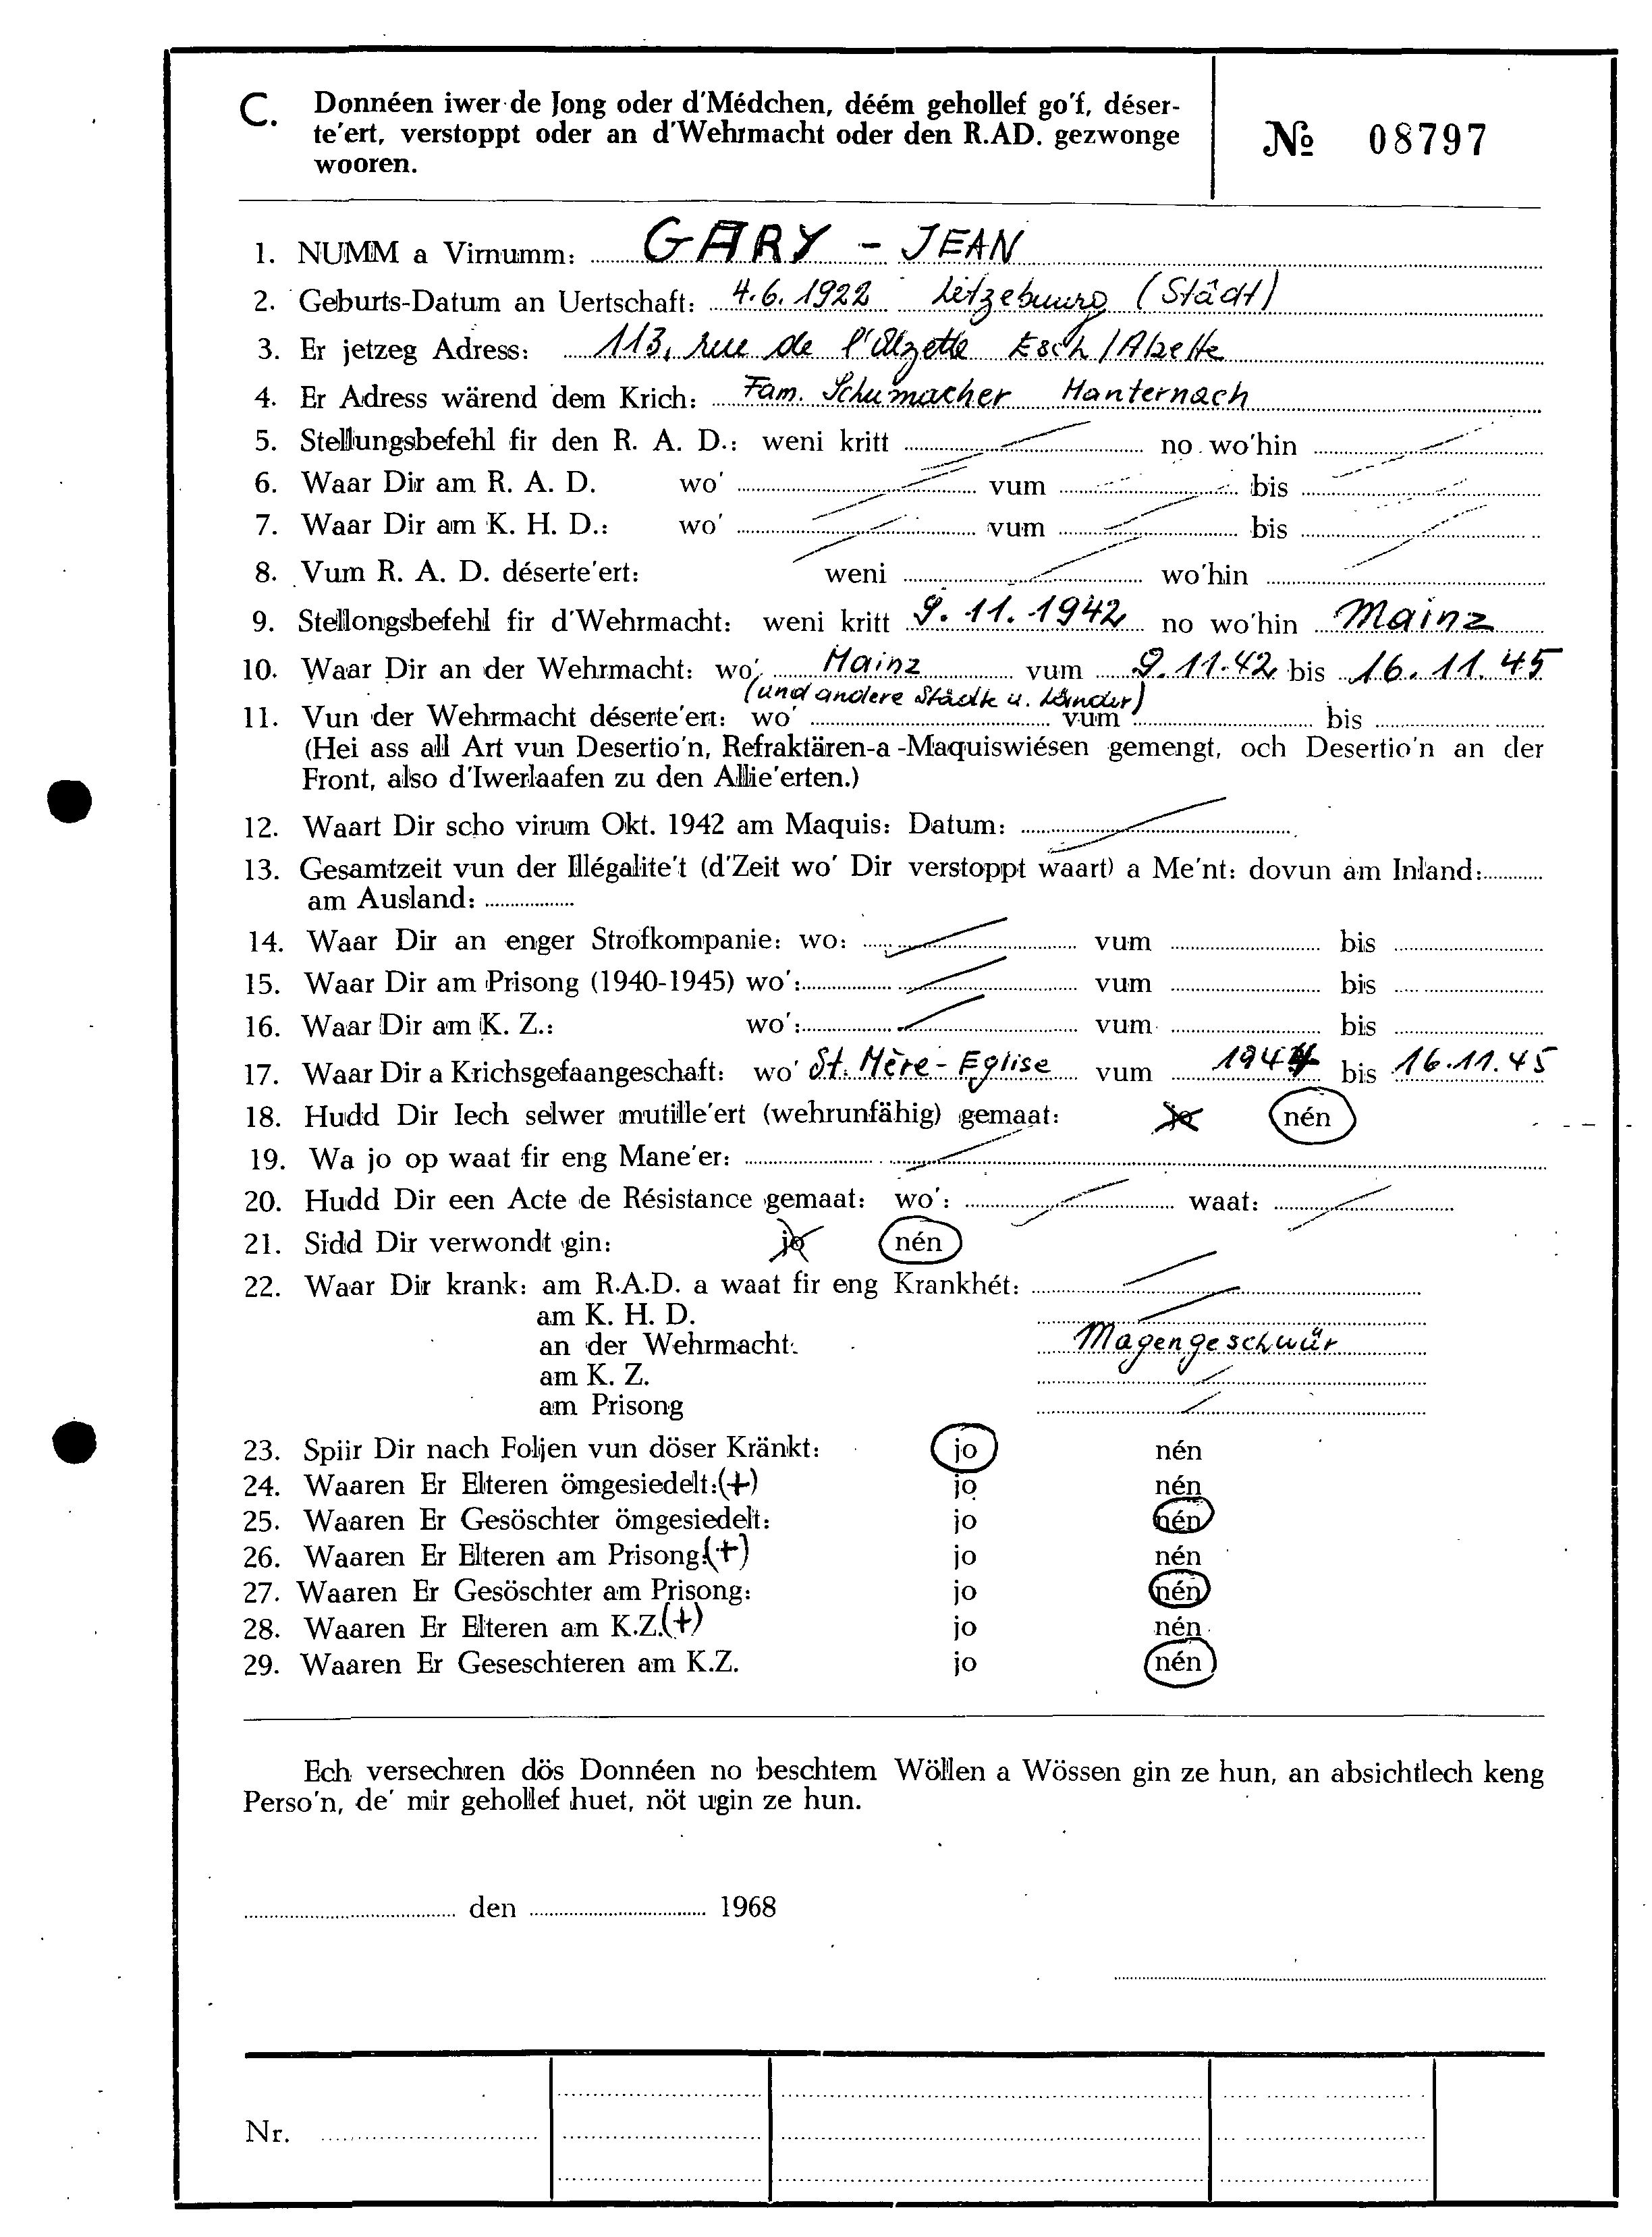 C. Donnéen iwer de Jong oder d'Médchen, déém gehollef go'f, déser-
te'ert, verstoppt oder an d'Wehrmacht oder den R.AD. gezwonge
wooren.
№ 08797
1. NUMM a Virnumm: GARY - JEAN
2. Geburts-Datum an Uertschaft: 4.6.1922 Lëtzebuurg (Städt)
3. Er jetzeg Adress: 113, rue de l'Alzette Esch/Alzette
4. Er Adress wärend dem Krich: Fam. Schumacher Manternach
5. Stellungsbefehl fir den R. A. D.: weni kritt no wo'hin
6. Waar Dir am R. A. D. wo' vum bis
7. Waar Dir am K. H. D.: wo' vum bis
8. Vum R. A. D. déserte'ert: weni wo'hin
9. Stellongsbefehl fir d'Wehrmacht: weni kritt 9.11.1942 no wo'hin Mainz
10. Waar Dir an der Wehrmacht: wo' Mainz vum 9.11.42 bis 16.11.45
(und andere Städte u. Länder)
11. Vun der Wehrmacht déserte'ert: wo' vum bis
(Hei ass all Art vun Desertio'n, Refraktären-a-Maquiswiésen gemengt, och Desertio'n an der
Front, also d'Iwerlaafen zu den Allie'erten.)
12. Waart Dir scho virum Okt. 1942 am Maquis: Datum:
13. Gesamtzeit vun der Illégalite't (d'Zeit wo' Dir verstoppt waart) a Me'nt: dovun am Inland:
am Ausland:
14. Waar Dir an enger Strofkompanie: wo: vum bis
15. Waar Dir am Prisong (1940-1945) wo': vum bis
16. Waar Dir am K. Z.: wo': vum bis
17. Waar Dir a Krichsgefaangeschaft: wo' St. Mère-Eglise vum 1944 bis 16.11.45
18. Hudd Dir Iech selwer mutille'ert (wehrunfähig) gemaat: jo nén
19. Wa jo op waat fir eng Mane'er:
20. Hudd Dir een Acte de Résistance gemaat: wo': waat:
21. Sidd Dir verwondt gin: jo nén
22. Waar Dir krank: am R.A.D. a waat fir eng Krankhét:
am K. H. D.
an der Wehrmacht: Magengeschwür
am K. Z.
am Prisong
23. Spiir Dir nach Foljen vun döser Kränkt: jo nén
24. Waaren Er Elteren ömgesiedelt:(+) jo nén
25. Waaren Er Gesöschter ömgesiedelt: jo nén
26. Waaren Er Elteren am Prisong:(+) jo nén
27. Waaren Er Gesöschter am Prisong: jo nén
28. Waaren Er Elteren am K.Z.(+) jo nén
29. Waaren Er Geseschteren am K.Z. jo nén
Ech versechren dös Donnéen no beschtem Wöllen a Wössen gin ze hun, an absichtlech keng
Perso'n, de' mir gehollef huet, nöt ugin ze hun.
den 1968
Nr.